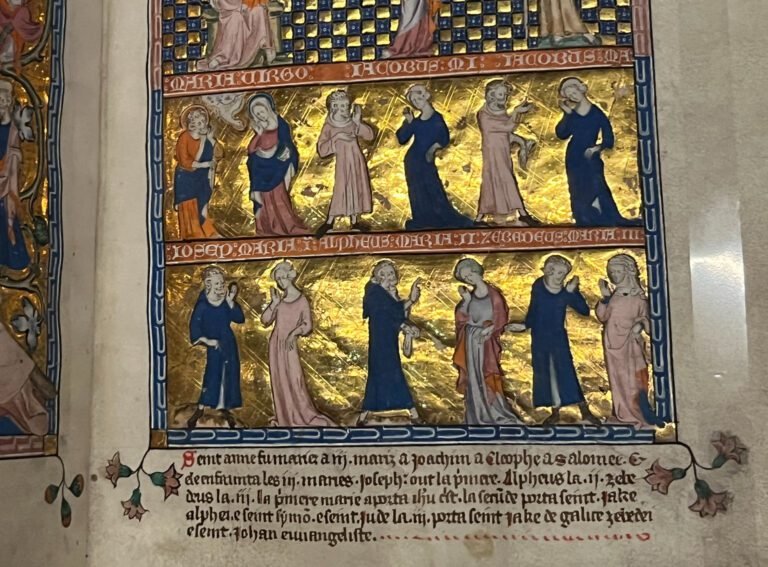 MARIA VIRGO. IACOBUS: MI: IACOBUS: MA
IOSEP: MARIA: I: ALPHEUS: MARIA II: ZEBEDEUS: MARIA: III
Seint anne fu mariee a .iij. mariz. a Joachim a Cleophe a Salomee. E
de eus ... les .iij. maries. Joseph: out la p'miere. Alpheus la .ij. zebe
deus la .iij. la p'miere marie aporta ihu c'st. la secu'de porta seint. Jake.
alphei. e seint symo'. e seint. Jude la .iij. porta seint Jake de galice zebedei
e seint. Johan ewangeliste.